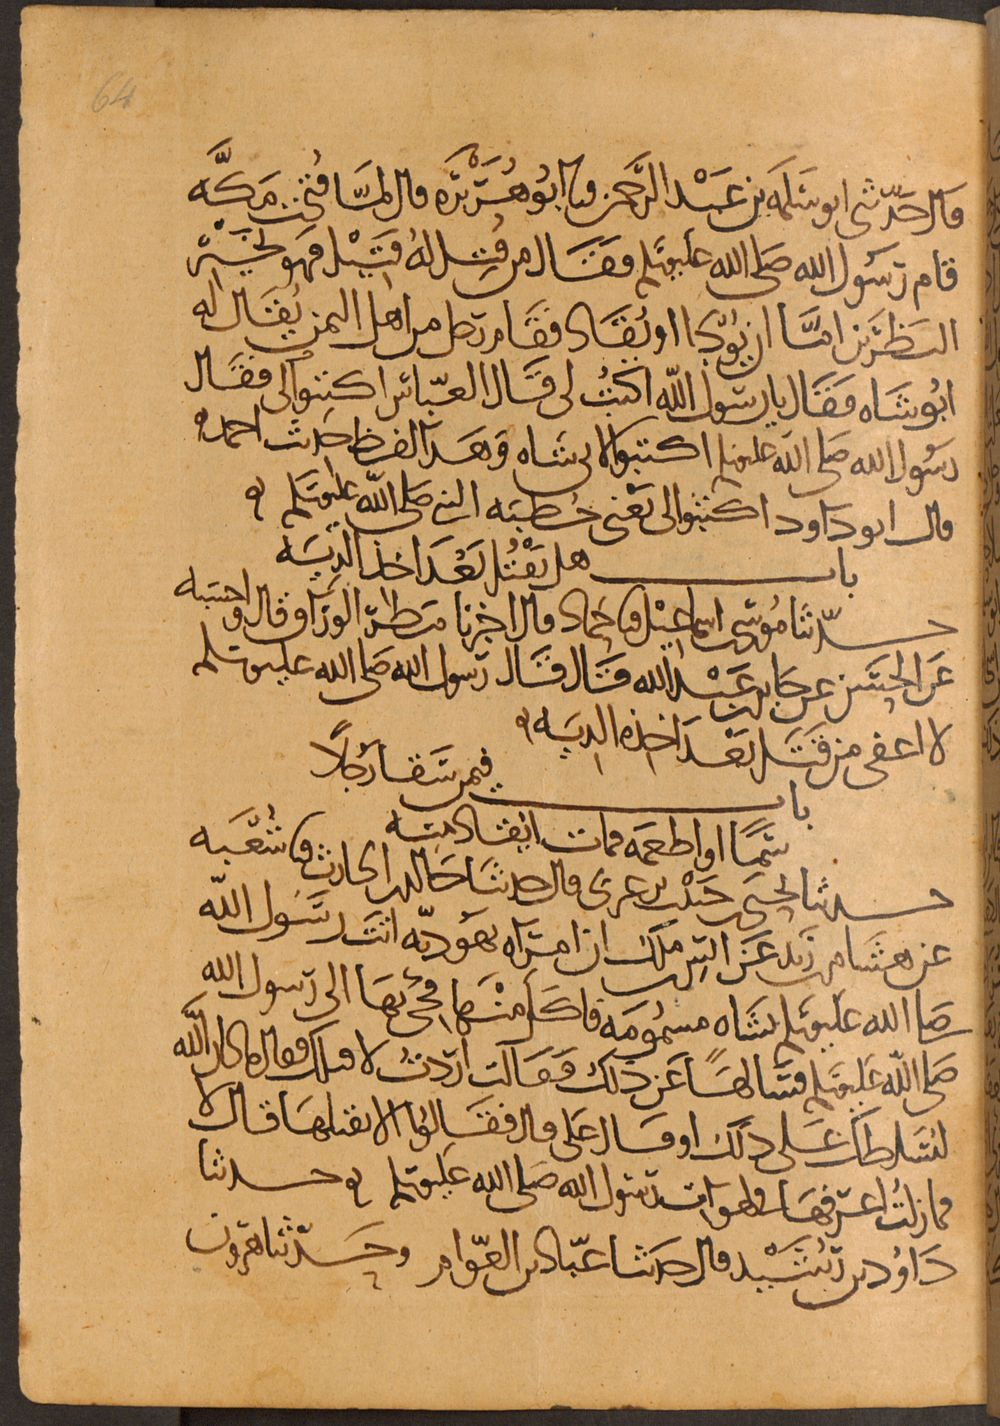 64
قال حدثني ابو سلمة بن عبد الرحمن نا ابو هريرة قال لما فتحت مكة
قام رسول الله صلى الله عليه وسلم فقال من قتل له قتيل فهو بخير
النظرين اما ان يودا او يقاد فقام رجل من اهل اليمن يقال له
ابو شاه فقال يا رسول الله اكتب لي قال العباس اكتبوا لي فقال
رسول الله صلى الله عليه وسلم اكتبوا لابي شاه وهذا لفظ حديث احمد
قال ابو داود اكتبوا لي يعني خطبة النبي صلى الله عليه وسلم
باب هل يقتل بعد اخذ الدية
حدثنا موسى بن اسماعيل نا حماد قال اخبرنا مطر الوراق قال واحسبه
عن الحسن عن جابر بن عبد الله قال قال رسول الله صلى الله عليه وسلم
لا اعفي من قتل بعد اخذه الدية
باب فيمن سقا رجلا
سما او اطعمه فمات ايقاد منه
حدثنا يحيى بن حبيب بن عربي قال حدثنا خالد بن الحارث نا شعبة
عن هشام بن زيد عن انس بن ملك ان امراة يهودية اتت رسول الله
صلى الله عليه وسلم بشاه مسمومة فاكل منها فجئ بها الى رسول الله
صلى الله عليه وسلم فسالها عن ذلك فقالت اردت لاقتلك فقال ما كان الله
ليسلطك على ذلك او قال علي قال فقالوا الا نقتلها قال لا
فما زلت اعرفها في لهوات رسول الله صلى الله عليه وسلم حدثنا
داود بن رشيد قال حدثنا عباد بن العوام وحدثنا هرون